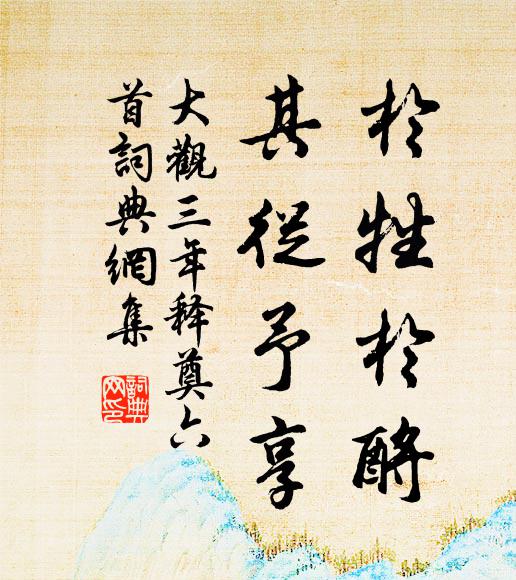 於牲於酹
其從予享
大觀三年释奠六
首詞典網集
詞典
网印